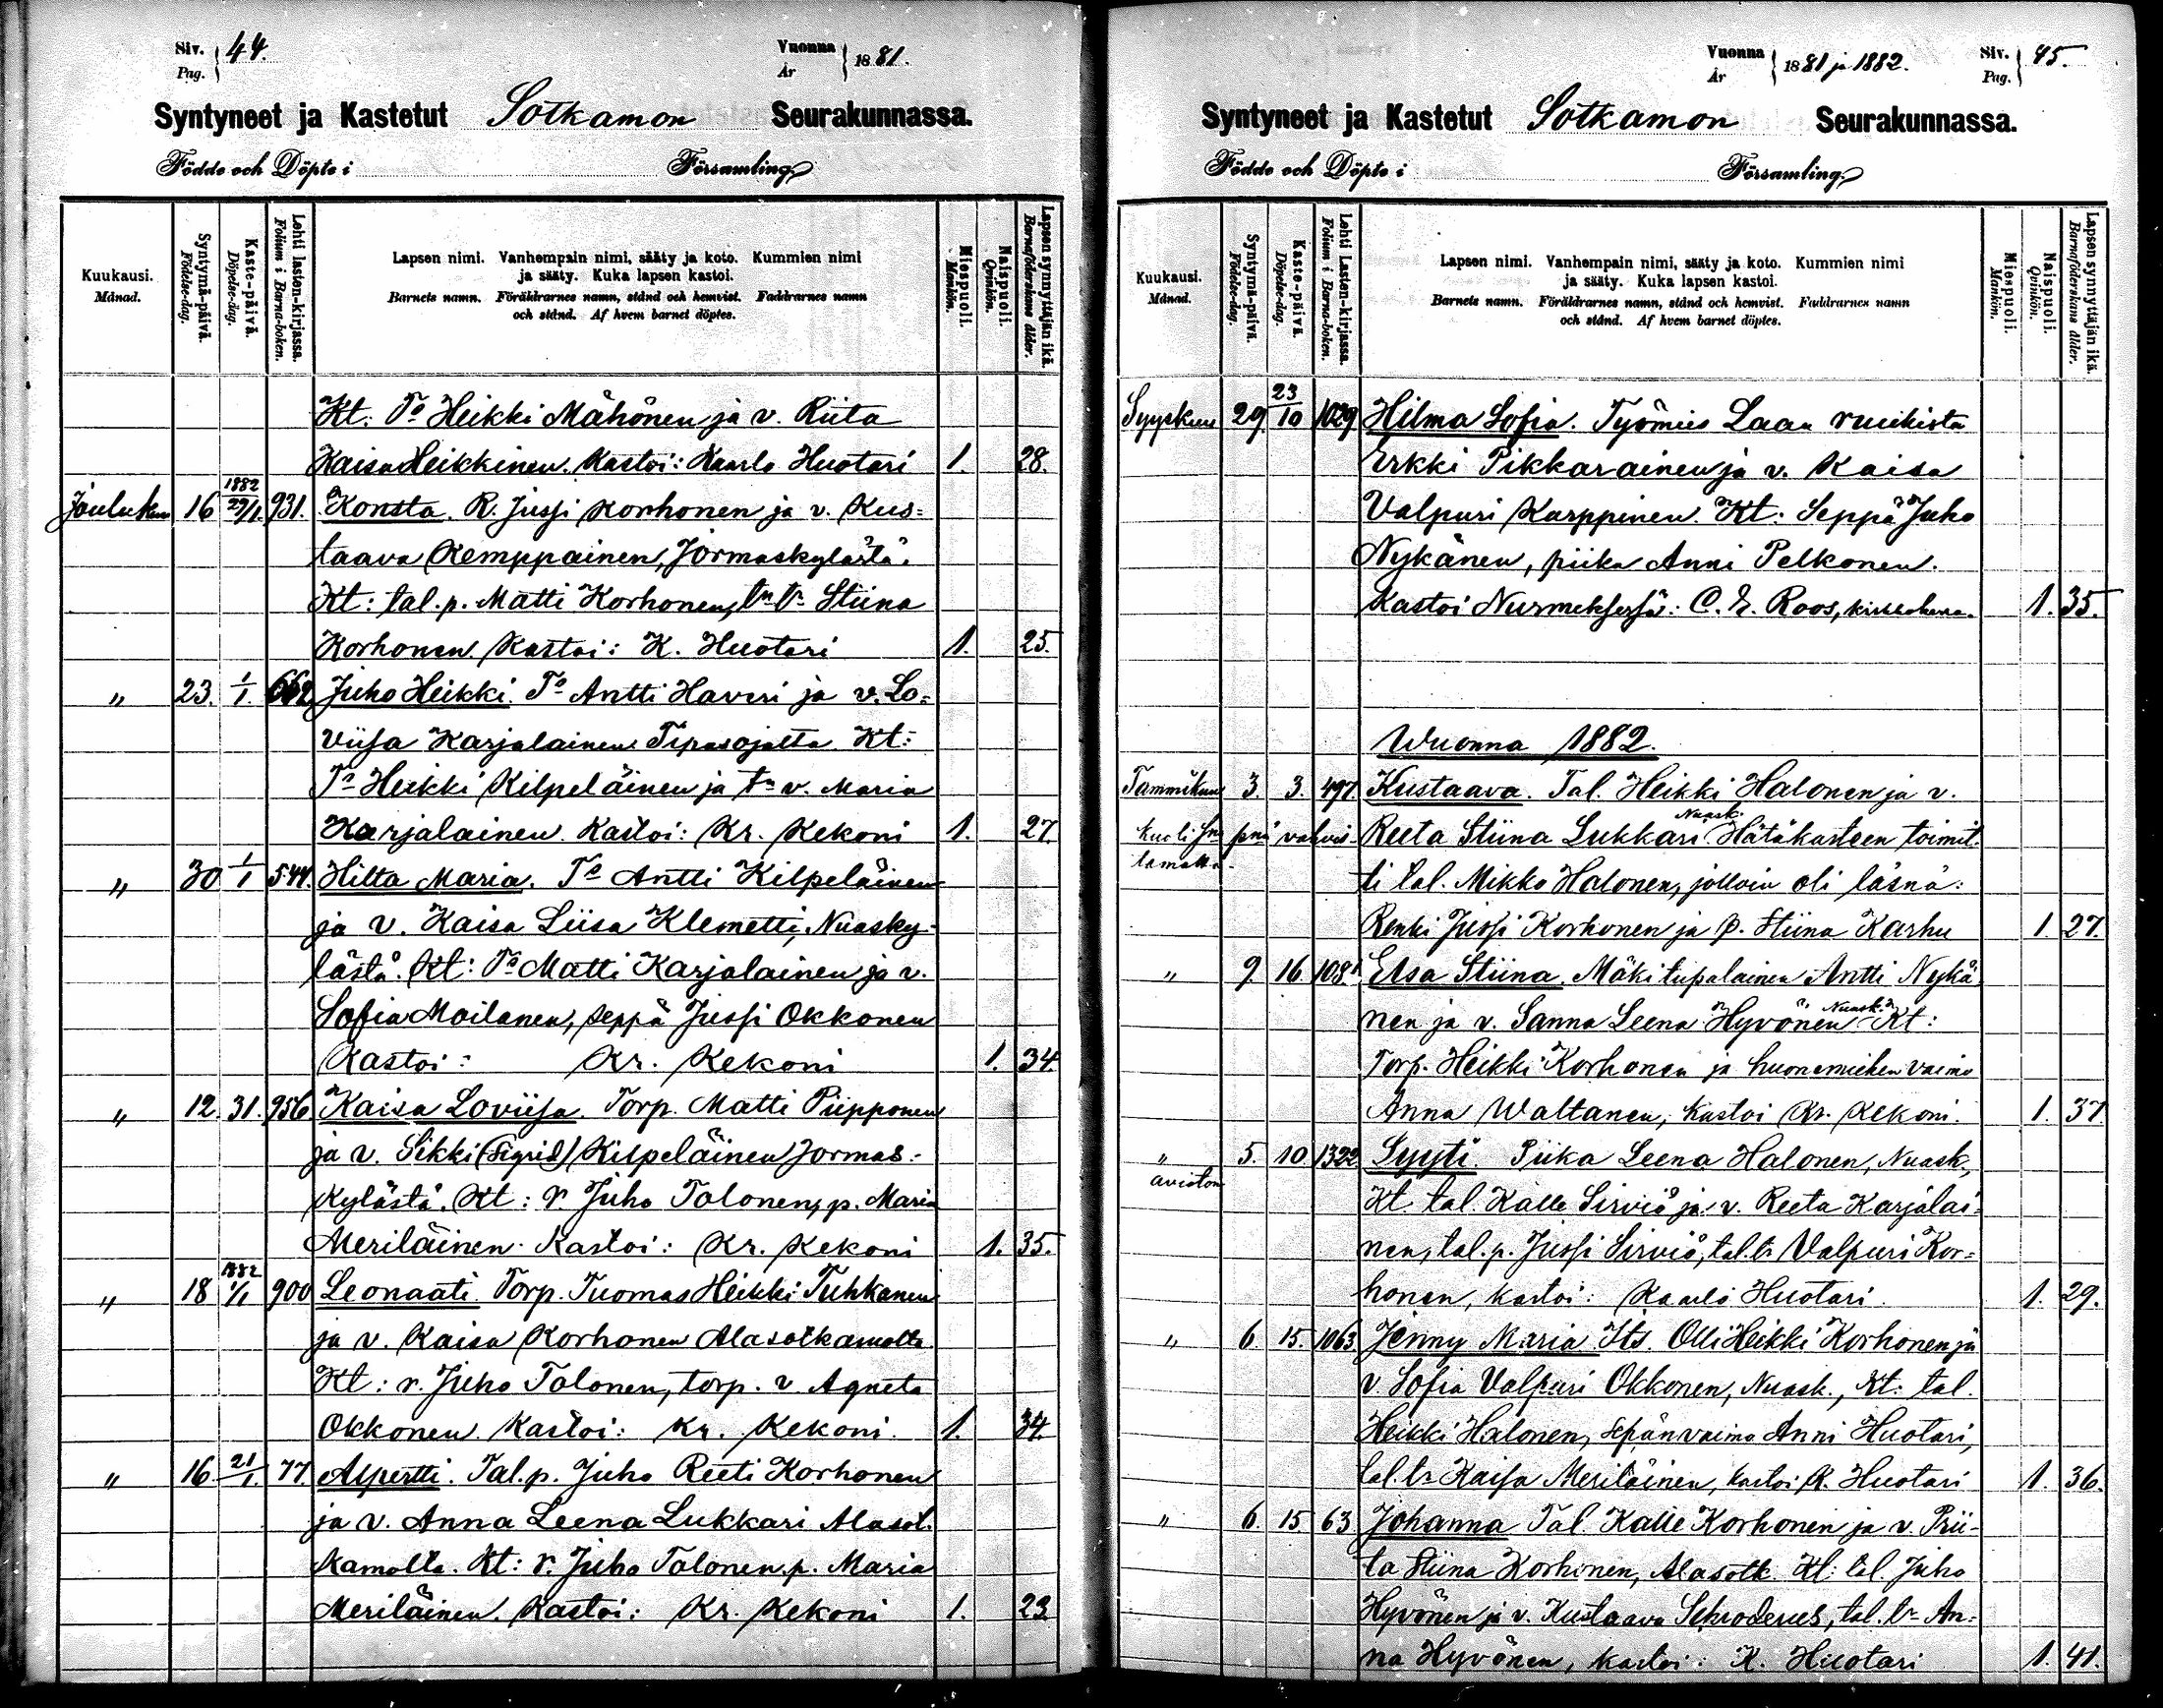 Siv. 44.
Pag.
Vuonna 1881.
År
Syntyneet ja Kastetut Sotkamon Seurakunnassa.
Födde och Döpte i Församling
Kuukausi.
Månad.
Syntymä-päivä.
Födelse-dag.
Kaste-päivä.
Döpelse-dag.
Lehti lasten-kirjassa.
Folium i Barna-boken.
Lapsen nimi. Vanhempain nimi, sääty ja koto. Kummien nimi
ja sääty. Kuka lapsen kastoi.
Barnets namn. Föräldrarnes namn, stånd och hemvist. Faddrarnes namn
och stånd. Af hvem barnet döptes.
Miespuoli.
Mankön.
Naispuoli.
Qvinkön.
Lapsen synnyttäjän ikä.
Barnaföderskans ålder.
Kt: To Heikki Mähönen ja v. Riita
Kaisa Heikkinen. Kastoi: Kaarlo Huotari 1. 28.
1882
Jouluken 16 29/1. 931. Konsta. R. Jussi Korhonen ja v. Kus=
taava Kemppainen, Jormaskylästä.
Kt: tal. p. Matti Korhonen, tn tr Stiina
Korhonen. Kastoi: K. Huotari 1. 25.
" 23. 1/1. 662 Juho Heikki. To Antti Havvi ja v. Lo=
viisa Karjalainen Tipasojalta Kt:
To Heikki Kilpeläinen ja tn v. Maria
Karjalainen. Kastoi: Kr. Kekoni 1. 27.
" 30 1/1 544. Hilta Maria. To Antti Kilpeläinen
ja v. Kaisa Liisa Klemetti, Nuasky-
lästä. Kt: To Matti Karjalainen ja v.
Sofia Moilanen, seppä Jussi Okkonen
Kastoi: Kr. Kekoni 1. 34.
" 12. 31. 956. Kaisa Loviisa. Torp. Matti Piipponen
ja v. Sikki (Sigrid) Kilpeläinen Jormas-
kylästä. Kt: r. Juho Tolonen, p. Maria
Meriläinen. Kastoi: Kr. Kekoni 1. 35.
1882
" 18 1/1 900 Leonaati. Torp. Tuomas Heikki Tuhkanen
ja v. Kaisa Korhonen Alasotkamolta.
Kt: r. Juho Tolonen, torp. v. Agneta
Okkonen. Kastoi: Kr. Kekoni. 1. 34.
" 16. 21/1. 77. Alpertti. Tal. p. Juho Reeti Korhonen
ja v. Anna Leena Lukkari Alasot.
kamolta. Kt: r. Juho Tolonen, p. Maria
Meriläinen. Kastoi: Kr. Kekoni 1. 23.
Vuonna 1881 ja 1882.
År
Siv. 45.
Pag.
Syntyneet ja Kastetut Sotkamon Seurakunnassa.
Födde och Döpte i Församling
Kuukausi.
Månad.
Syntymä-päivä.
Födelse-dag.
Kaste-päivä.
Döpelse-dag.
Lehti Lasten-kirjassa.
Folium i Barna-boken.
Lapsen nimi. Vanhempain nimi, sääty ja koto. Kummien nimi
ja sääty. Kuka lapsen kastoi.
Barnets namn. Föräldrarnes namn, stånd och hemvist. Faddrarnes namn
och stånd. Af hvem barnet döptes.
Miespuoli.
Mankön.
Naispuoli.
Qvinkön.
Lapsen synnyttäjän ikä.
Barnaföderskans ålder.
Syyskuu 29. 23/10 1029 Hilma Sofia. Työmies Laan ruukista
Erkki Pikkarainen ja v. Kaisa
Valpuri Karppinen. Kt: Seppä Juho
Nykänen, piika Anni Pelkonen.
Kastoi Nurmeksessä: C. E. Roos, kirkkoherra. 1. 35.
Wuonna 1882.
Tammikuu 3. 3. 497. Kustaava. Tal. Heikki Halonen ja v.
kuoli pnä vahvis- Reeta Stiina Lukkari Nuask. Hätäkasteen toimit-
tamatta. ti tal. Mikko Halonen, jolloin oli läsnä:
Renki Jussi Korhonen ja p. Stiina Karhu 1. 27.
" 9. 16. 1081 Elsa Stiina. Mäkitupalainen Antti Nykä
nen ja v. Sanna Leena Hyvönen Nuask. Kt:
Torp. Heikki Korhonen ja huonemiehen vaimo
Anna Waltanen, kastoi Kr. Kekoni. 1. 37.
" 5. 10. 1322 Syyti Piika Leena Halonen, Nuask.,
avioton Kt. tal. Kalle Sirviö ja v. Reeta Karjalai=
nen, tal. p. Jussi Sirviö, tal. tr Valpuri Kor=
honen, kastoi: Kaarlo Huotari. 1. 29.
" 6. 15. 1063. Jenny Maria. Its. Olli Heikki Korhonen ja
v. Sofia Valpuri Okkonen, Nuask., Kt: tal.
Heikki Halonen, sepän vaimo Anni Huotari,
tal. tr Kaisa Meriläinen, kastoi K. Huotari 1. 36.
" 6. 15 63 Johanna Tal. Kalle Korhonen ja v. Prii-
ta Stiina Korhonen, Alasotk. Kt: tal. Juho
Hyvönen ja v. Kustaava Schroderus, tal. tr An=
na Hyvönen, kastoi: K. Huotari 1. 41.